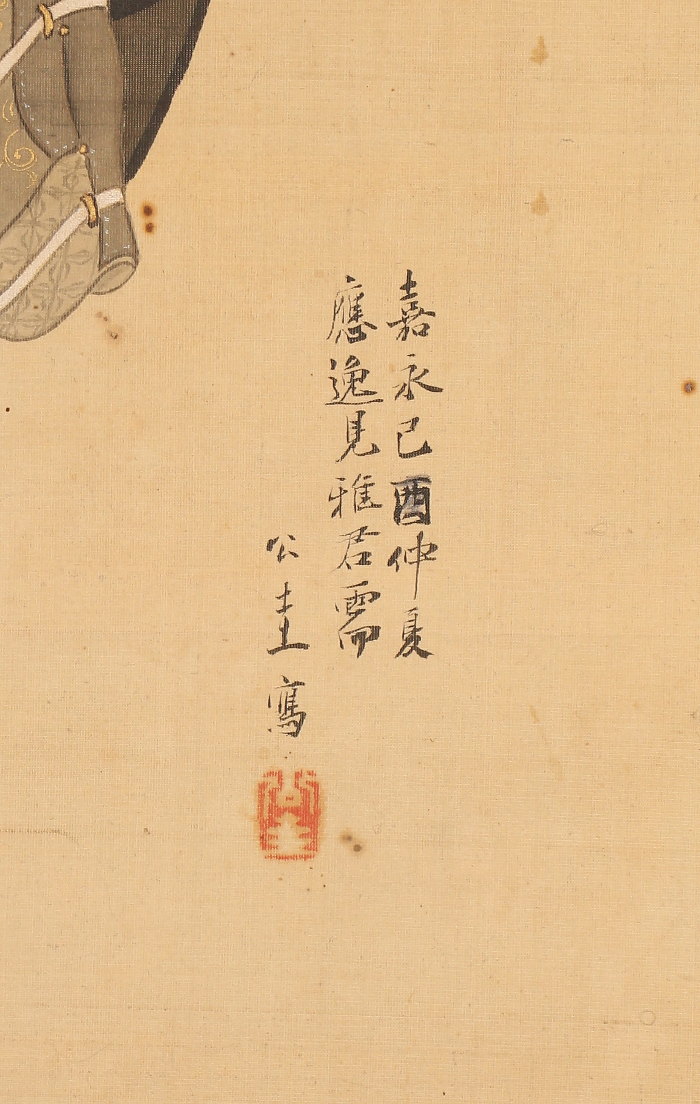 嘉永己酉仲夏
應逸見雅君需
公圭寫